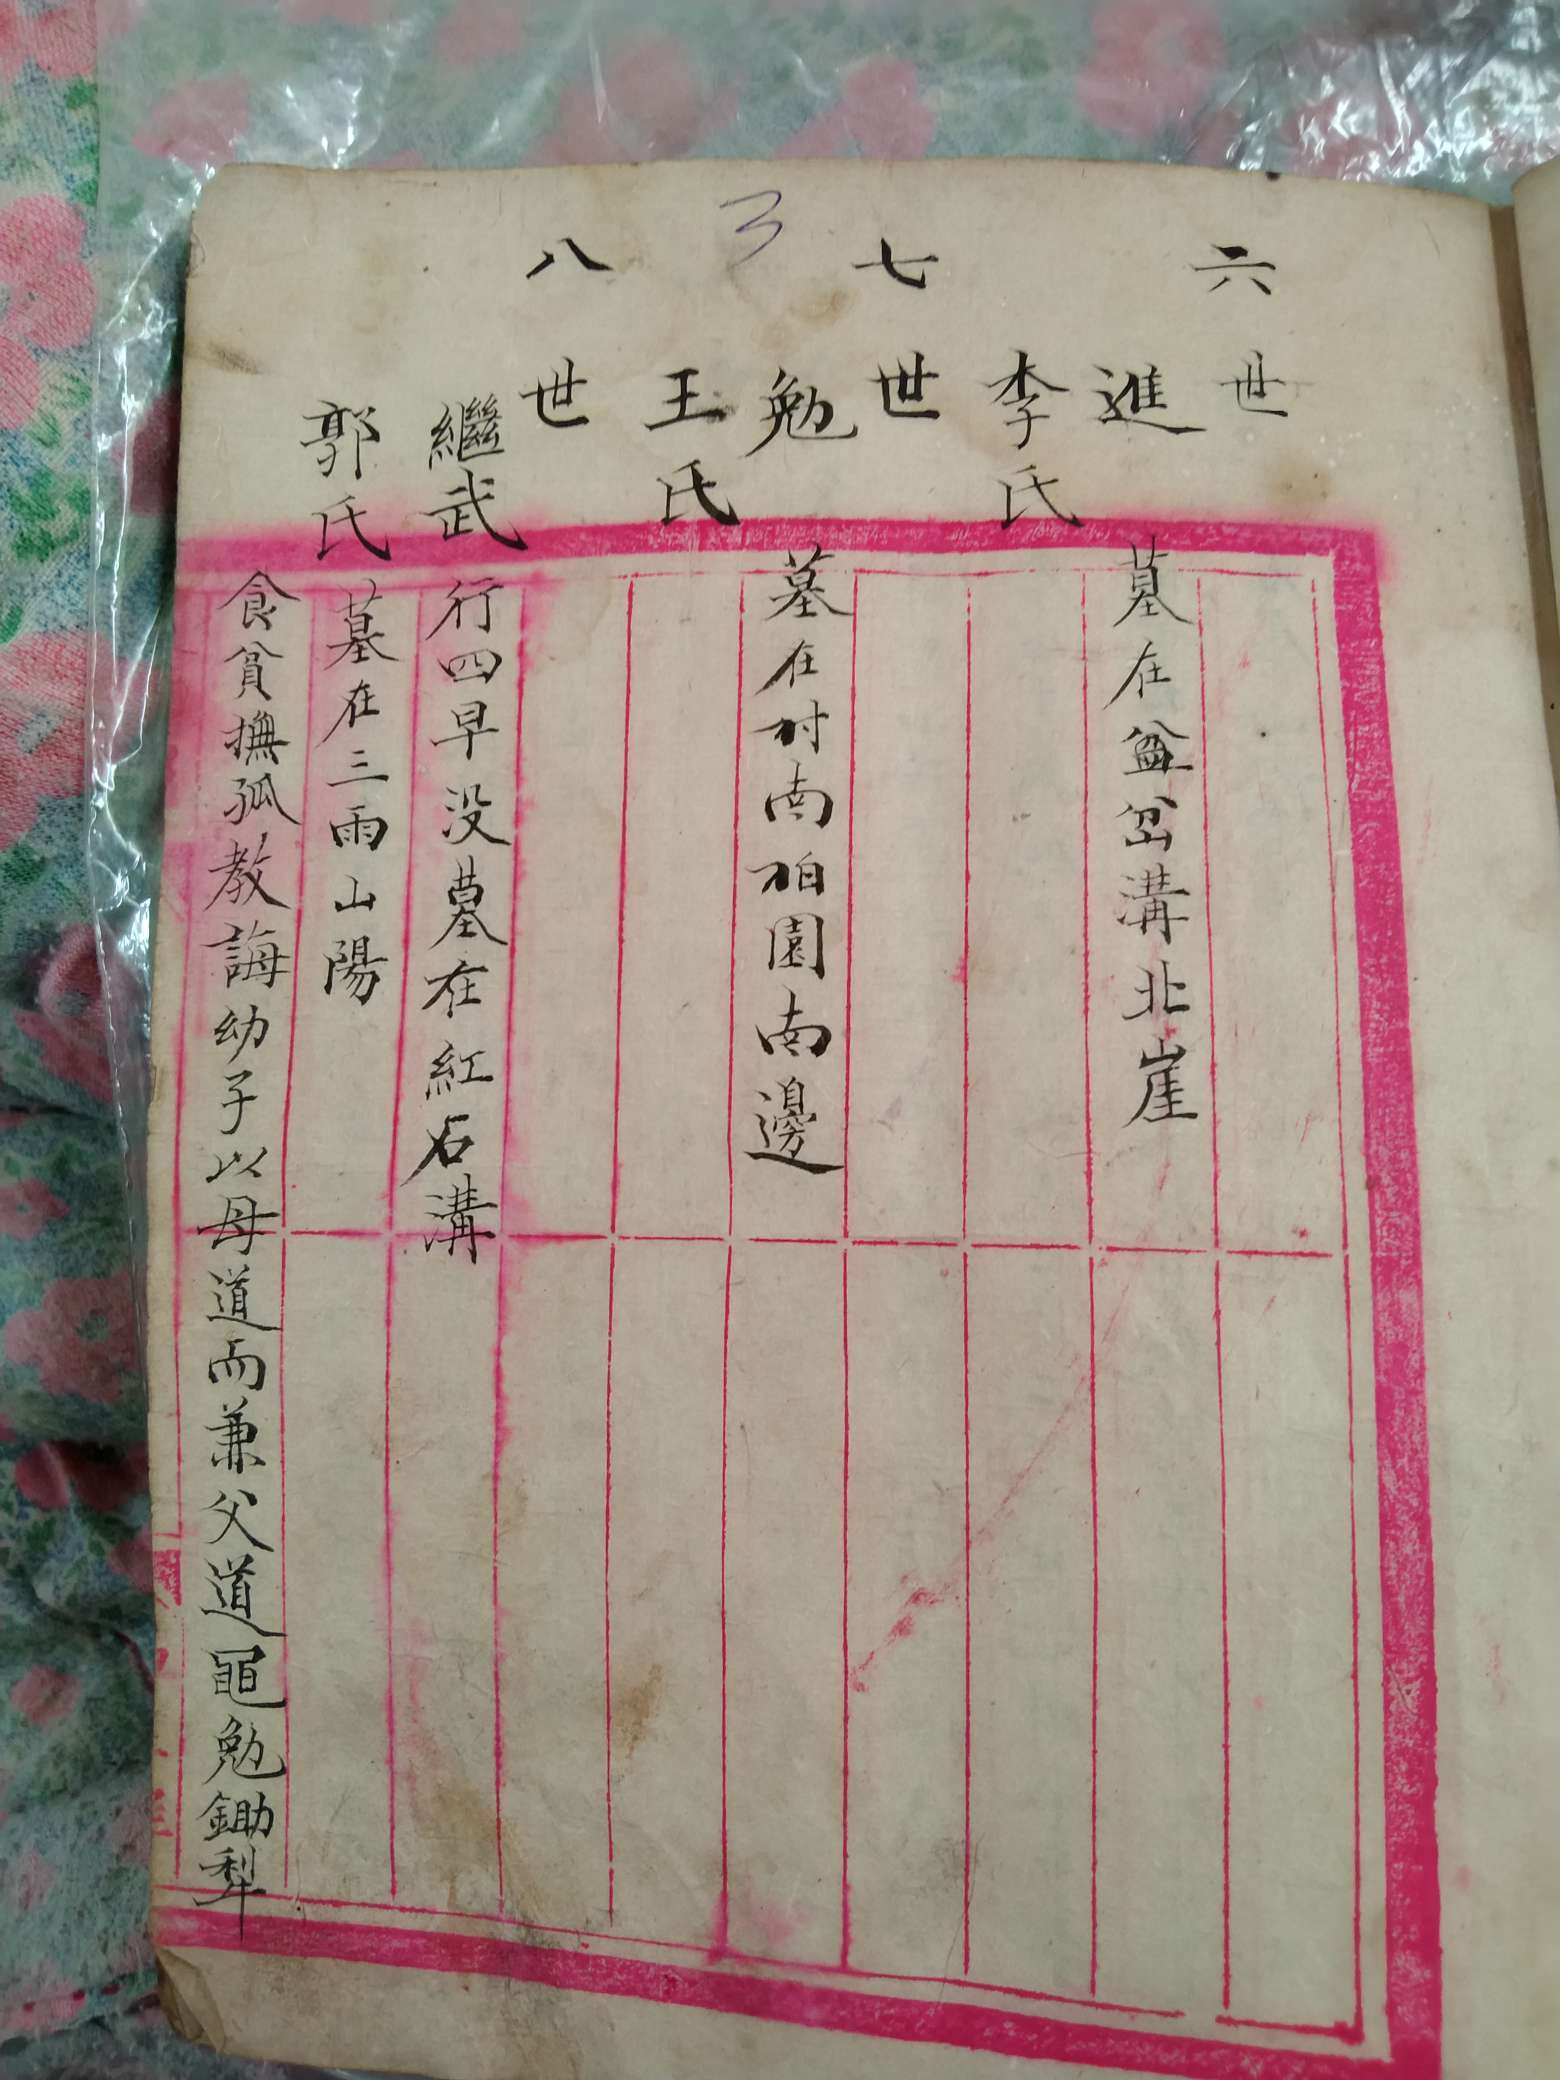 六世
進 墓在盆岔溝北崖
李氏
七世
勉 墓在村南柏園南邊
王氏
八世
繼武 行四早没墓在紅石溝
郭氏 墓在三雨山陽
食貧撫孤教誨幼子以母道而兼父道黽勉鋤犁